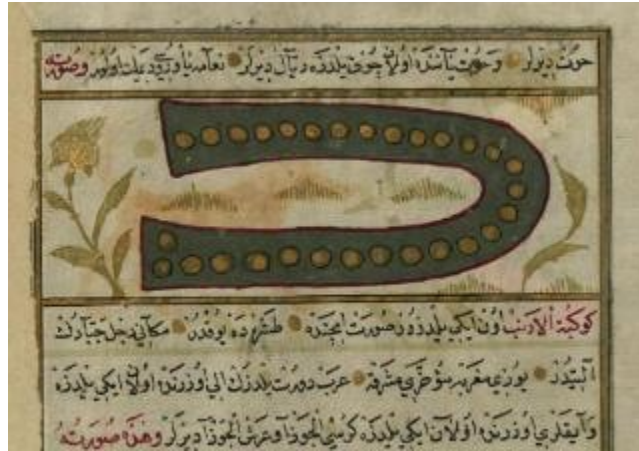 حوت ديرلر وحوت ياننده اولان چوق يلدزه ريال ديرلر نعامه يا وصورته
كوكبة الارنب اون ايكى يلدزدر صورت ايچنده طشره ده يوقدر مكانى رجل جبارك
التيدر يوزى مغربه مؤخرى مشرقه عرب دورت يلدزك الى اوزرنده اولان ايكى يلدزه
واياقلرى اوزرنده اولان ايكى يلدزه كرسى الجوزا وعرش الجوزا ديرلر وهذه صورته